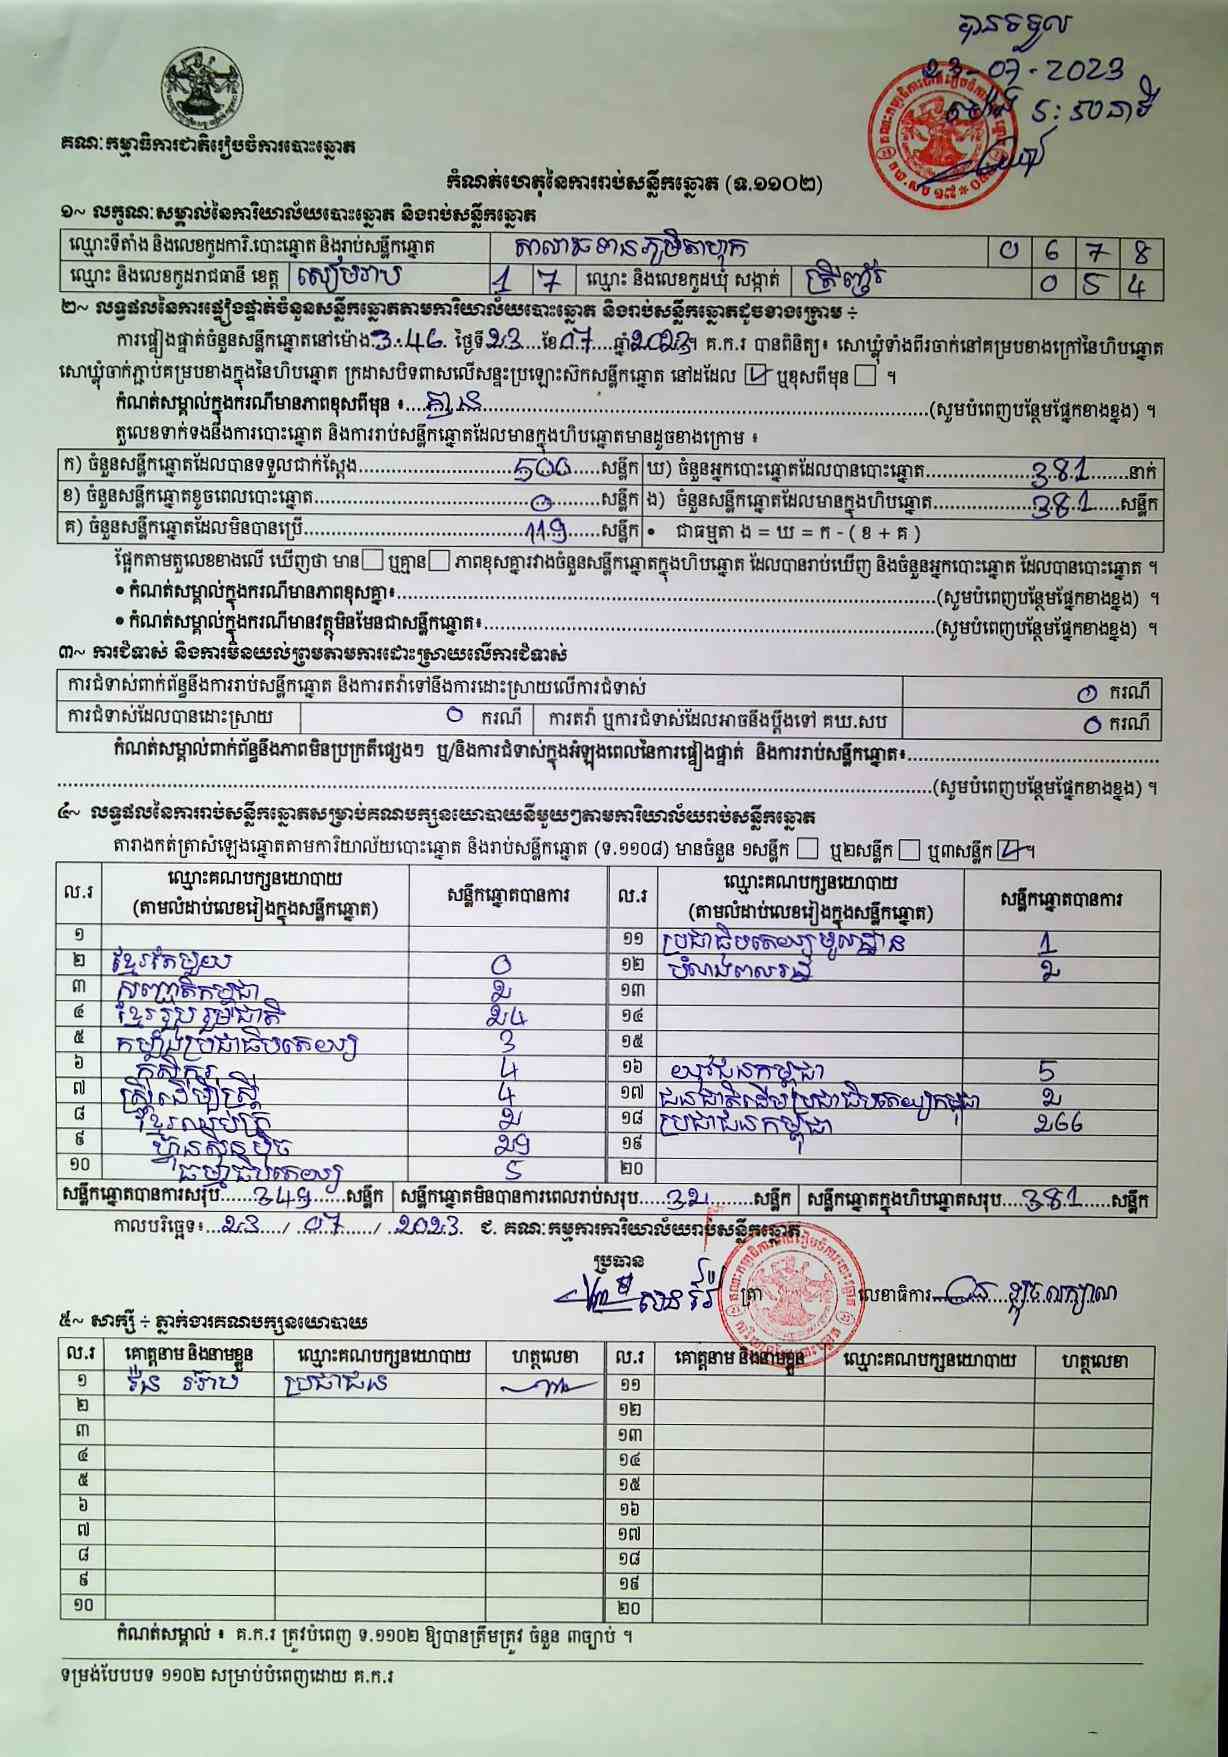 បានទទួល
23-07-2023
ម៉ោង 5:50នាទី
គណៈកម្មាធិការជាតិរៀបចំការបោះឆ្នោត
កំណត់ហេតុនៃការរាប់សន្លឹកឆ្នោត (ទ.១១០២)
១~ លក្ខណៈសម្គាល់នៃការិយាល័យបោះឆ្នោត និងរាប់សន្លឹកឆ្នោត
ឈ្មោះទីតាំង និងលេខកូដការិ.បោះឆ្នោត និងរាប់សន្លឹកឆ្នោត សាលាឆទានភូមិតាហុក 0 6 7 8
ឈ្មោះ និងលេខកូដរាជធានី ខេត្ត សៀមរាប 1 7 ឈ្មោះ និងលេខកូដឃុំ សង្កាត់ ត្រីញ័រ 0 5 4
២~ លទ្ធផលនៃការផ្ទៀងផ្ទាត់ចំនួនសន្លឹកឆ្នោតតាមការិយាល័យបោះឆ្នោត និងរាប់សន្លឹកឆ្នោតដូចខាងក្រោម ÷
ការផ្ទៀងផ្ទាត់ចំនួនសន្លឹកឆ្នោតនៅម៉ោង 3:46 ថ្ងៃទី 23 ខែ 07 ឆ្នាំ 2023 ។ គ.ក.រ បានពិនិត្យ៖ សោឃ្លុំទាំងពីរចាក់នៅគម្របខាងក្រៅនៃហិបឆ្នោត
សោឃ្លុំចាក់ភ្ជាប់គម្របខាងក្នុងនៃហិបឆ្នោត ក្រដាសបិទពាសលើសន្ទះប្រឡោះស៊កសន្លឹកឆ្នោត នៅដដែល ☑ ឬខុសពីមុន ☐ ។
កំណត់សម្គាល់ក្នុងករណីមានភាពខុសពីមុន ៖ គ្មាន (សូមបំពេញបន្ថែមផ្នែកខាងខ្នង) ។
តួលេខទាក់ទងនឹងការបោះឆ្នោត និងការរាប់សន្លឹកឆ្នោតដែលមានក្នុងហិបឆ្នោតមានដូចខាងក្រោម ៖
ក) ចំនួនសន្លឹកឆ្នោតដែលបានទទួលជាក់ស្តែង 500 សន្លឹក ឃ) ចំនួនអ្នកបោះឆ្នោតដែលបានបោះឆ្នោត 381 នាក់
ខ) ចំនួនសន្លឹកឆ្នោតខូចពេលបោះឆ្នោត 0 សន្លឹក ង) ចំនួនសន្លឹកឆ្នោតដែលមានក្នុងហិបឆ្នោត 381 សន្លឹក
គ) ចំនួនសន្លឹកឆ្នោតដែលមិនបានប្រើ 119 សន្លឹក • ជាធម្មតា ង = ឃ = ក - ( ខ + គ )
ផ្អែកតាមតួលេខខាងលើ ឃើញថា មាន ☐ ឬគ្មាន ☐ ភាពខុសគ្នារវាងចំនួនសន្លឹកឆ្នោតក្នុងហិបឆ្នោត ដែលបានរាប់ឃើញ និងចំនួនអ្នកបោះឆ្នោត ដែលបានបោះឆ្នោត ។
• កំណត់សម្គាល់ក្នុងករណីមានភាពខុសគ្នា៖ (សូមបំពេញបន្ថែមផ្នែកខាងខ្នង) ។
• កំណត់សម្គាល់ក្នុងករណីមានវត្ថុមិនមែនជាសន្លឹកឆ្នោត៖ (សូមបំពេញបន្ថែមផ្នែកខាងខ្នង) ។
៣~ ការជំទាស់ និងការមិនយល់ព្រមតាមការដោះស្រាយលើការជំទាស់
ការជំទាស់ពាក់ព័ន្ធនឹងការរាប់សន្លឹកឆ្នោត និងការតវ៉ាទៅនឹងការដោះស្រាយលើការជំទាស់ 0 ករណី
ការជំទាស់ដែលបានដោះស្រាយ 0 ករណី ការតវ៉ា ឬការជំទាស់ដែលអាចនឹងប្តឹងទៅ គឃ.សប 0 ករណី
កំណត់សម្គាល់ពាក់ព័ន្ធនឹងភាពមិនប្រក្រតីផ្សេងៗ ឬ/និងការជំទាស់ក្នុងអំឡុងពេលនៃការផ្ទៀងផ្ទាត់ និងការរាប់សន្លឹកឆ្នោត៖
(សូមបំពេញបន្ថែមផ្នែកខាងខ្នង) ។
៤~ លទ្ធផលនៃការរាប់សន្លឹកឆ្នោតសម្រាប់គណបក្សនយោបាយនីមួយៗតាមការិយាល័យរាប់សន្លឹកឆ្នោត
តារាងកត់ត្រាសំឡេងឆ្នោតតាមការិយាល័យបោះឆ្នោត និងរាប់សន្លឹកឆ្នោត (ទ.១១០៨) មានចំនួន ១សន្លឹក ☐ ឬ២សន្លឹក ☐ ឬ៣សន្លឹក ☑ ។
ល.រ ឈ្មោះគណបក្សនយោបាយ (តាមលំដាប់លេខរៀងក្នុងសន្លឹកឆ្នោត) សន្លឹកឆ្នោតបានការ ល.រ ឈ្មោះគណបក្សនយោបាយ (តាមលំដាប់លេខរៀងក្នុងសន្លឹកឆ្នោត) សន្លឹកឆ្នោតបានការ
១ ១១ ប្រជាធិបតេយ្យមូលដ្ឋាន 1
២ ខ្មែរតែមួយ 0 ១២ បំណងពលរដ្ឋ 2
៣ សញ្ជាតិកម្ពុជា 2 ១៣
៤ ខ្មែររួបរួមជាតិ 24 ១៤
៥ កម្លាំងប្រជាធិបតេយ្យ 3 ១៥
៦ កសិករ 4 ១៦ យុវជនកម្ពុជា 5
៧ ស្ត្រីដើម្បីស្ត្រី 4 ១៧ ជនជាតិដើមប្រជាធិបតេយ្យកម្ពុជា 2
៨ ខ្មែរឈប់ក្រ 2 ១៨ ប្រជាជនកម្ពុជា 266
៩ ហ៊្វុនស៊ិនប៉ិច 29 ១៩
១០ ធម្មាធិបតេយ្យ 5 ២០
សន្លឹកឆ្នោតបានការសរុប 349 សន្លឹក សន្លឹកឆ្នោតមិនបានការពេលរាប់សរុប 32 សន្លឹក សន្លឹកឆ្នោតក្នុងហិបឆ្នោតសរុប 381 សន្លឹក
កាលបរិច្ឆេទ៖ 23 / 07 / 2023 ជ. គណៈកម្មការការិយាល័យរាប់សន្លឹកឆ្នោត
ប្រធាន
ត្រា លេខាធិការ
៥~ សាក្សី ÷ ភ្នាក់ងារគណបក្សនយោបាយ
ល.រ គោត្តនាម និងនាមខ្លួន ឈ្មោះគណបក្សនយោបាយ ហត្ថលេខា ល.រ គោត្តនាម និងនាមខ្លួន ឈ្មោះគណបក្សនយោបាយ ហត្ថលេខា
១ ប្រជាជន ១១
២ ១២
៣ ១៣
៤ ១៤
៥ ១៥
៦ ១៦
៧ ១៧
៨ ១៨
៩ ១៩
១០ ២០
កំណត់សម្គាល់ ៖ គ.ក.រ ត្រូវបំពេញ ទ.១១០២ ឱ្យបានត្រឹមត្រូវ ចំនួន ៣ច្បាប់ ។
ទម្រង់បែបបទ ១១០២ សម្រាប់បំពេញដោយ គ.ក.រ